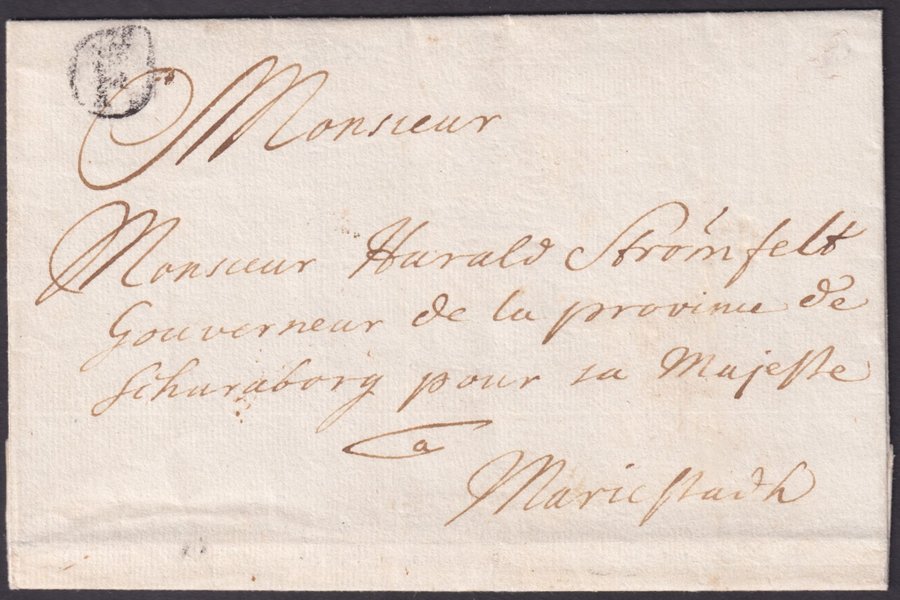 Monsieur
Monsieur Harald Strömfelt
Gouverneur de la province de
Scharaborg pour sa Majeste
a
Mariestadh